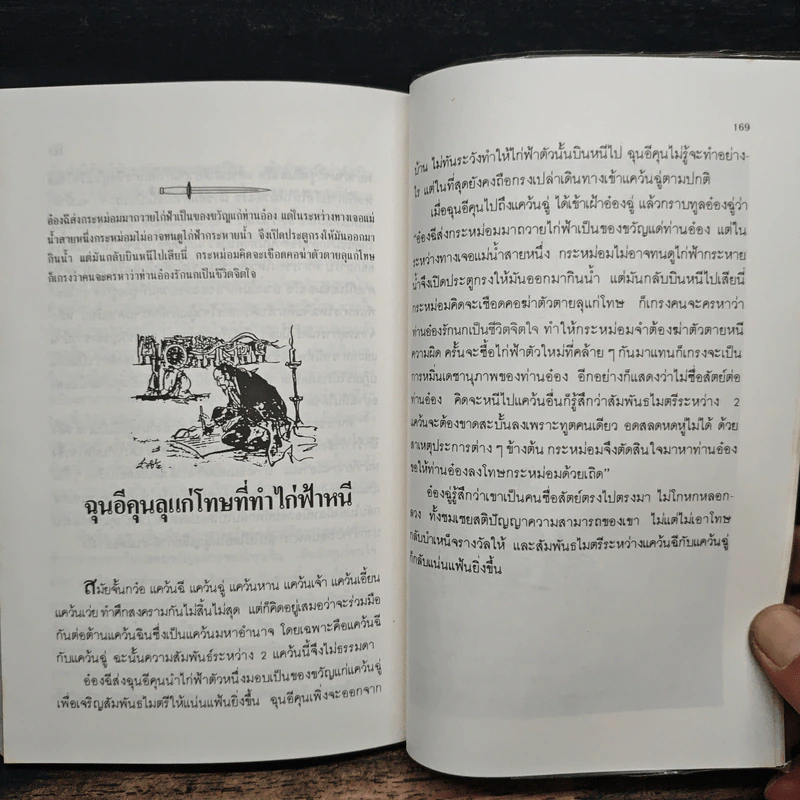 อ๋องฉีส่งกระหม่อมมาถวายไก่ฟ้าเป็นของขวัญแก่ท่านอ๋อง แต่ในระหว่างทางเจอแม่
น้ำสายหนึ่งกระหม่อมไม่อาจทนดูไก่ฟ้ากระหายน้ำ จึงเปิดประตูกรงให้มันออกมา
กินน้ำ แต่มันกลับบินหนีไปเสียนี่ กระหม่อมคิดจะเชือดคอฆ่าตัวตายลุแก่โทษ
ก็เกรงว่าคนจะครหาว่าท่านอ๋องรักนกเป็นชีวิตจิตใจ
ฉุนอีคุนลุแก่โทษที่ทำไก่ฟ้าหนี
สมัยจั้นกว๋อ แคว้นฉี แคว้นฉู่ แคว้นหาน แคว้นเจ้า แคว้นเอี้ยน
แคว้นเว่ย ทำศึกสงครามกันไม่สิ้นไม่สุด แต่ก็คิดอยู่เสมอว่าจะร่วมมือ
กันต่อต้านแคว้นฉินซึ่งเป็นแคว้นมหาอำนาจ โดยเฉพาะคือแคว้นฉี
กับแคว้นฉู่ ฉะนั้นความสัมพันธ์ระหว่าง 2 แคว้นนี้จึงไม่ธรรมดา
อ๋องฉีส่งฉุนอีคุนนำไก่ฟ้าตัวหนึ่งมอบเป็นของขวัญแก่แคว้นฉู่
เพื่อเจริญสัมพันธไมตรีให้แน่นแฟ้นยิ่งขึ้น ฉุนอีคุนเพิ่งจะออกจาก
169
บ้าน ไม่ทันระวังทำให้ไก่ฟ้าตัวนั้นบินหนีไป ฉุนอีคุนไม่รู้จะทำอย่าง-
ไร แต่ในที่สุดยังคงถือกรงเปล่าเดินทางเข้าแคว้นฉู่ตามปกติ
เมื่อฉุนอีคุนไปถึงแคว้นฉู่ ได้เข้าเฝ้าอ๋องฉู่ แล้วกราบทูลอ๋องฉู่ว่า
"อ๋องฉีส่งกระหม่อมมาถวายไก่ฟ้าเป็นของขวัญแด่ท่านอ๋อง แต่ใน
ระหว่างทางเจอแม่น้ำสายหนึ่ง กระหม่อมไม่อาจทนดูไก่ฟ้ากระหาย
น้ำจึงเปิดประตูกรงให้มันออกมากินน้ำ แต่มันกลับบินหนีไปเสียนี่
กระหม่อมคิดจะเชือดคอฆ่าตัวตายลุแก่โทษ ก็เกรงคนจะครหาว่า
ท่านอ๋องรักนกเป็นชีวิตจิตใจ ทำให้กระหม่อมจำต้องฆ่าตัวตายหนี
ความผิด ครั้นจะซื้อไก่ฟ้าตัวใหม่ที่คล้าย ๆ กันมาแทนก็เกรงจะเป็น
การหมิ่นเดชานุภาพของท่านอ๋อง อีกอย่างก็แสดงว่าไม่ซื่อสัตย์ต่อ
ท่านอ๋อง คิดจะหนีไปแคว้นอื่นก็รู้สึกว่าสัมพันธไมตรีระหว่าง 2
แคว้นจะต้องขาดสะบั้นลงเพราะทูตคนเดียว อดสลดหดหู่ไม่ได้ ด้วย
สาเหตุประการต่าง ๆ ข้างต้น กระหม่อมจึงตัดสินใจมาหาท่านอ๋อง
ขอให้ท่านอ๋องลงโทษกระหม่อมด้วยเถิด"
อ๋องฉู่รู้สึกว่าเขาเป็นคนซื่อสัตย์ตรงไปตรงมา ไม่โกหกหลอก-
ลวง ทั้งชมเชยสติปัญญาความสามารถของเขา ไม่แต่ไม่เอาโทษ
กลับบำเหน็จรางวัลให้ และสัมพันธไมตรีระหว่างแคว้นฉีกับแคว้นฉู่
ก็กลับแน่นแฟ้นยิ่งขึ้น